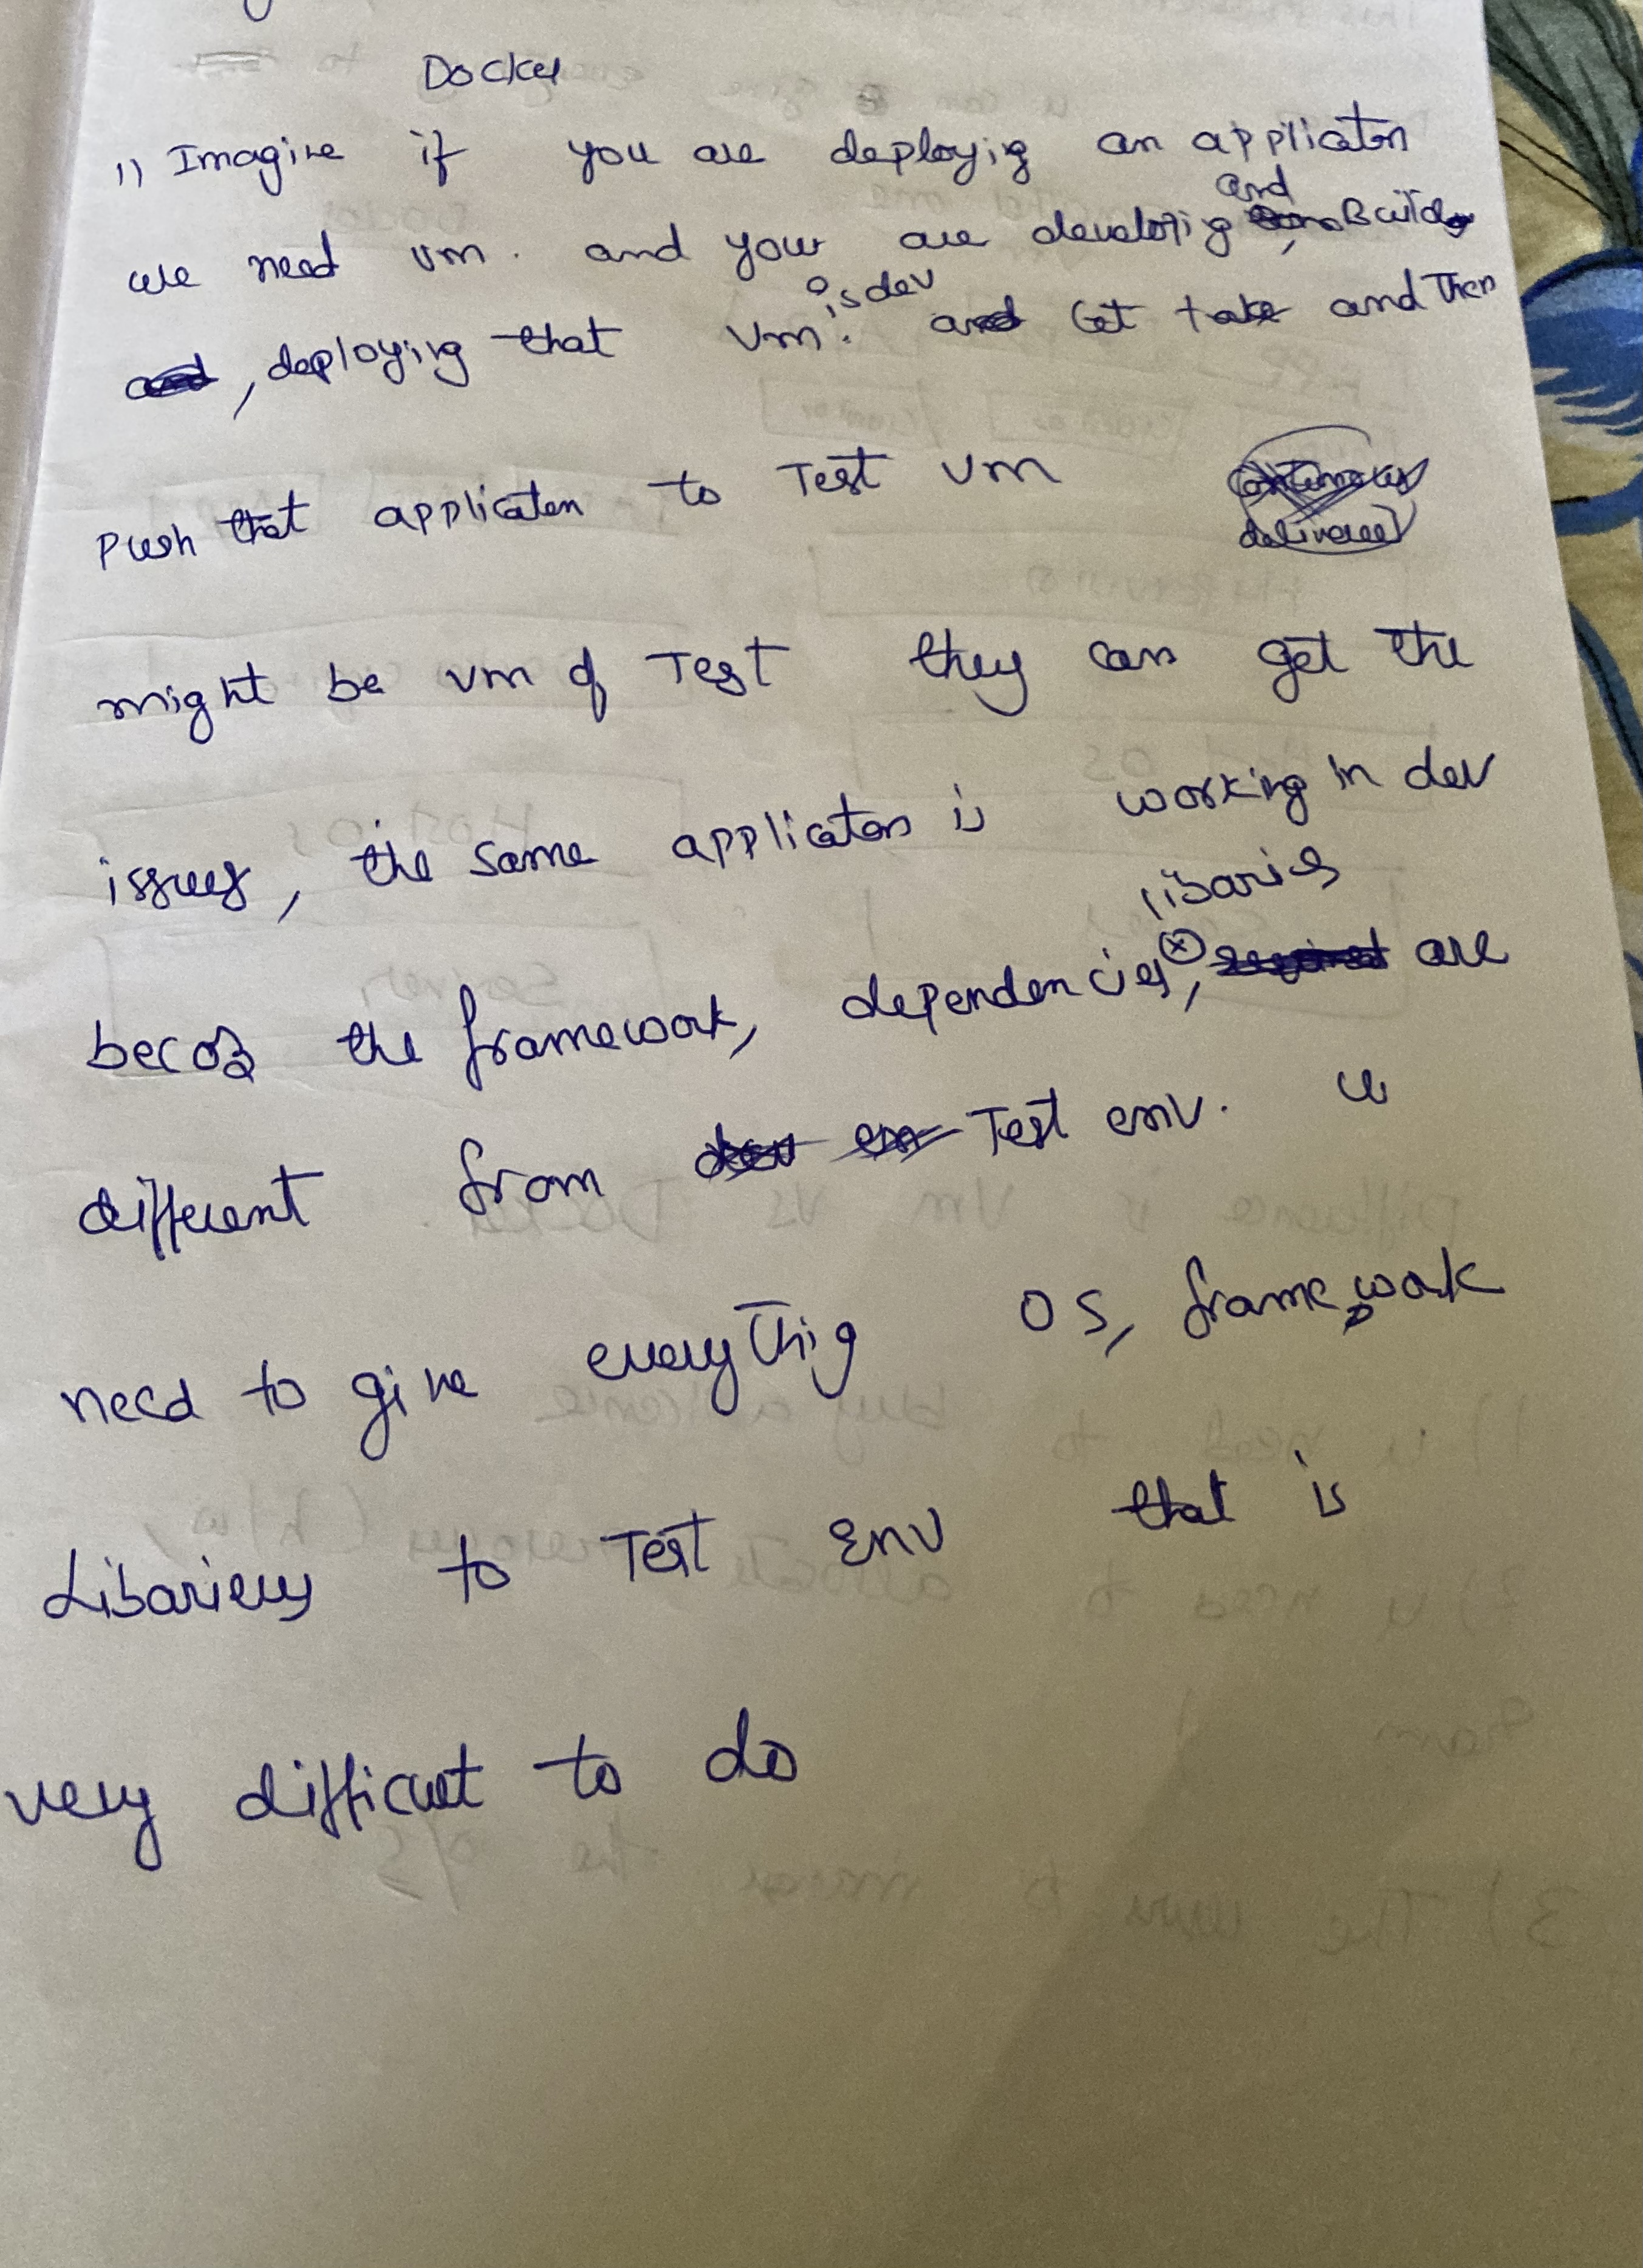 Docker
1) Imagine if you are deployig an applicaton
we need vm. and your are developig and Build
, deploying that vm. is dev Let take and Then
Push that applicaton to Test vm
might be vm of Test they can get the
issues, the same applicaton is working in dev
becoz the framework, dependencies, libaries are
different from Test env. u
need to give everythig OS, framework
Libaries to Test Env that is
very difficult to do